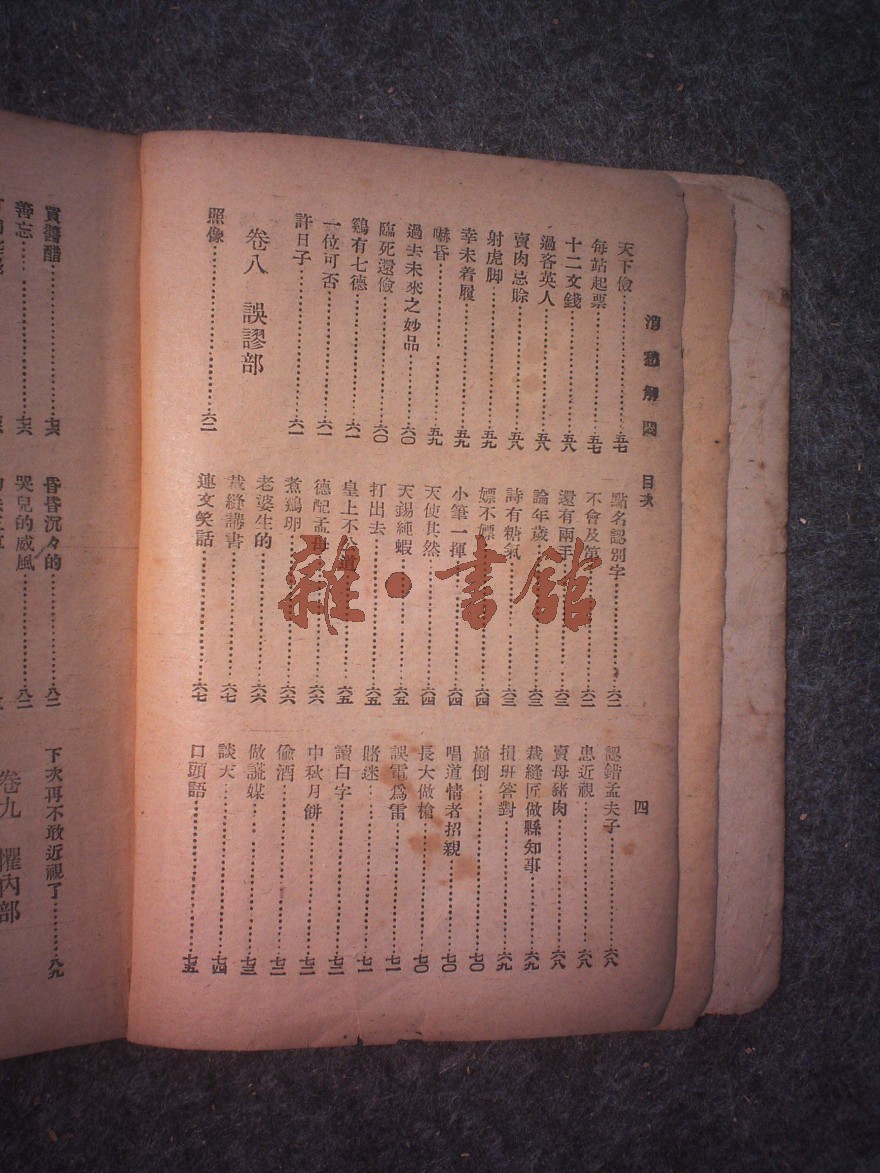 消愁解悶 目次 四
天下儉……五七
每站起票……五七
十二文錢……五八
過吝英人……五八
賣肉忌賒……五八
射虎脚……五九
幸未着履……五九
嚇昏……五九
過去未來之妙品……六〇
臨死還儉……六〇
鷄有七德……六一
一位可否……六一
許日子……六一
卷八 誤謬部
照像……六二
點名認別字……六二
不會及第……六二
還有兩手……六三
論年歲……六三
詩有糖氣……六三
嫖不嫖……六四
小筆一揮……六四
天使其然……六四
天錫純蝦……六五
打出去……六五
皇上不公道……六五
德配孟母……六六
煮鷄卵……六六
老婆生的……六六
裁縫講書……六七
連文笑話……六七
認錯孟夫子……六八
患近視……六八
賣母豬肉……六八
裁縫匠做縣知事……六九
捐班答對……六九
巔倒……七〇
唱道情者招親……七〇
長大做槍……七〇
誤電爲雷……七一
賭迷……七一
讀白字……七二
中秋月餅……七二
偸酒……七二
做謊媒……七三
談天……七四
口頭語……七五
買醬醋……七六
善忘……七六
昏昏沉々的……八二
哭兒的威風……八二
下次再不敢近視了……八九
卷九 懼內部
雜·書館